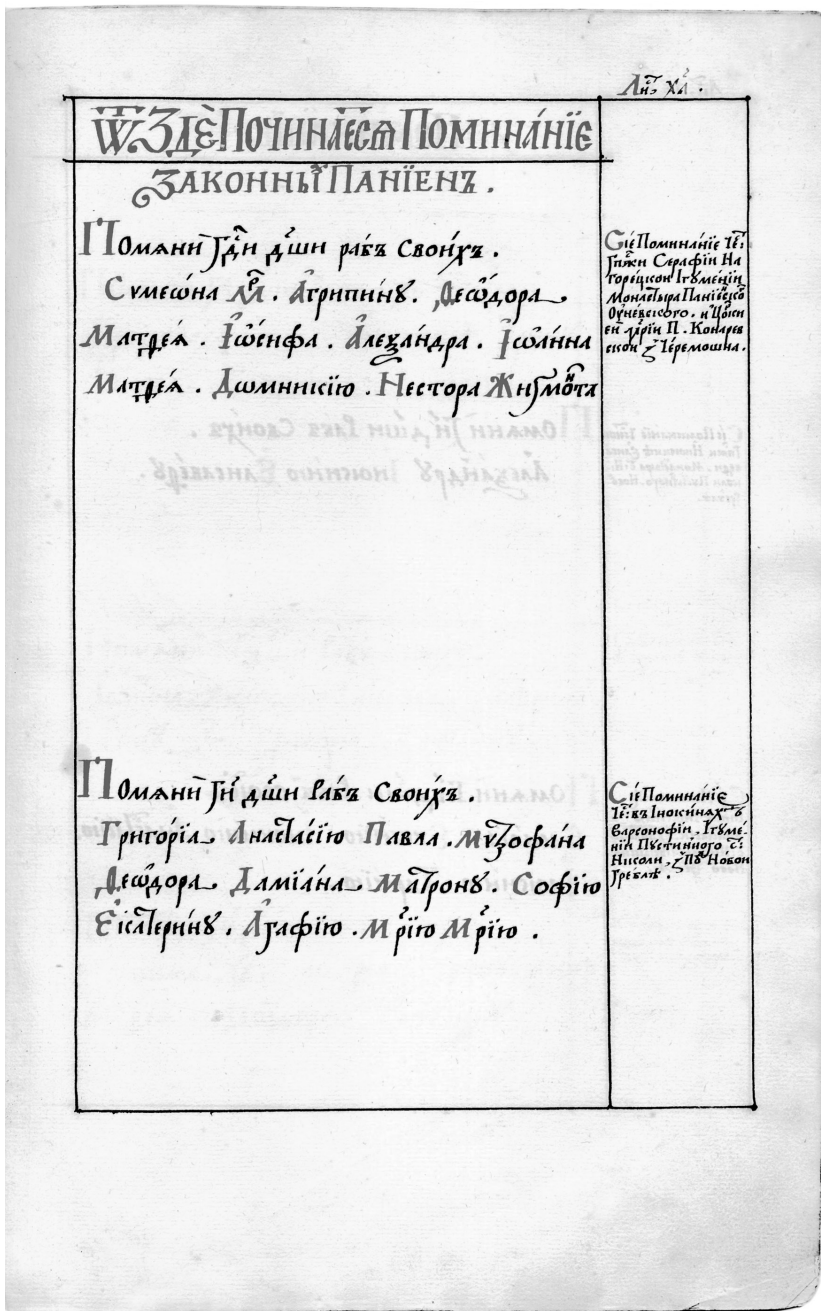 Лис҃ ха҃ .
Ѿ Здѐ Починаетсѧ Поминанїе
Законных Панїен .
Помѧни Гди дш҃и рабъ Своихъ .
Сѵмеѡна Мр҃ . Агрипину . Ѳеѡдора
Матѳеѧ . Іѡсифа . Алеѯандра . Іѡанна
Матѳеѧ . Домникїю . Нестора Жигмонта
Сіе Поминанїе Че҃:
Гпжи Серафїи На
горецкои Ігуменїи
Монастыра Панїенского
и Цорки
еи Марїи П . Конарев
скои з Черемошна .
Помѧни Гй дш҃и Рабъ Своихъ .
Григорїа Анастасїю Павла .
Ѳеѡдора Дамїана Матрону . Софїю
Екатерину . Агафїю . Мр҃їю Мр҃їю .
Сіе Поминанїе
Че҃: въ Інокинѧх
Варсонофїи . Ігуме-
нїи Пустинного С҃:
Николи , Новои
Гребли .